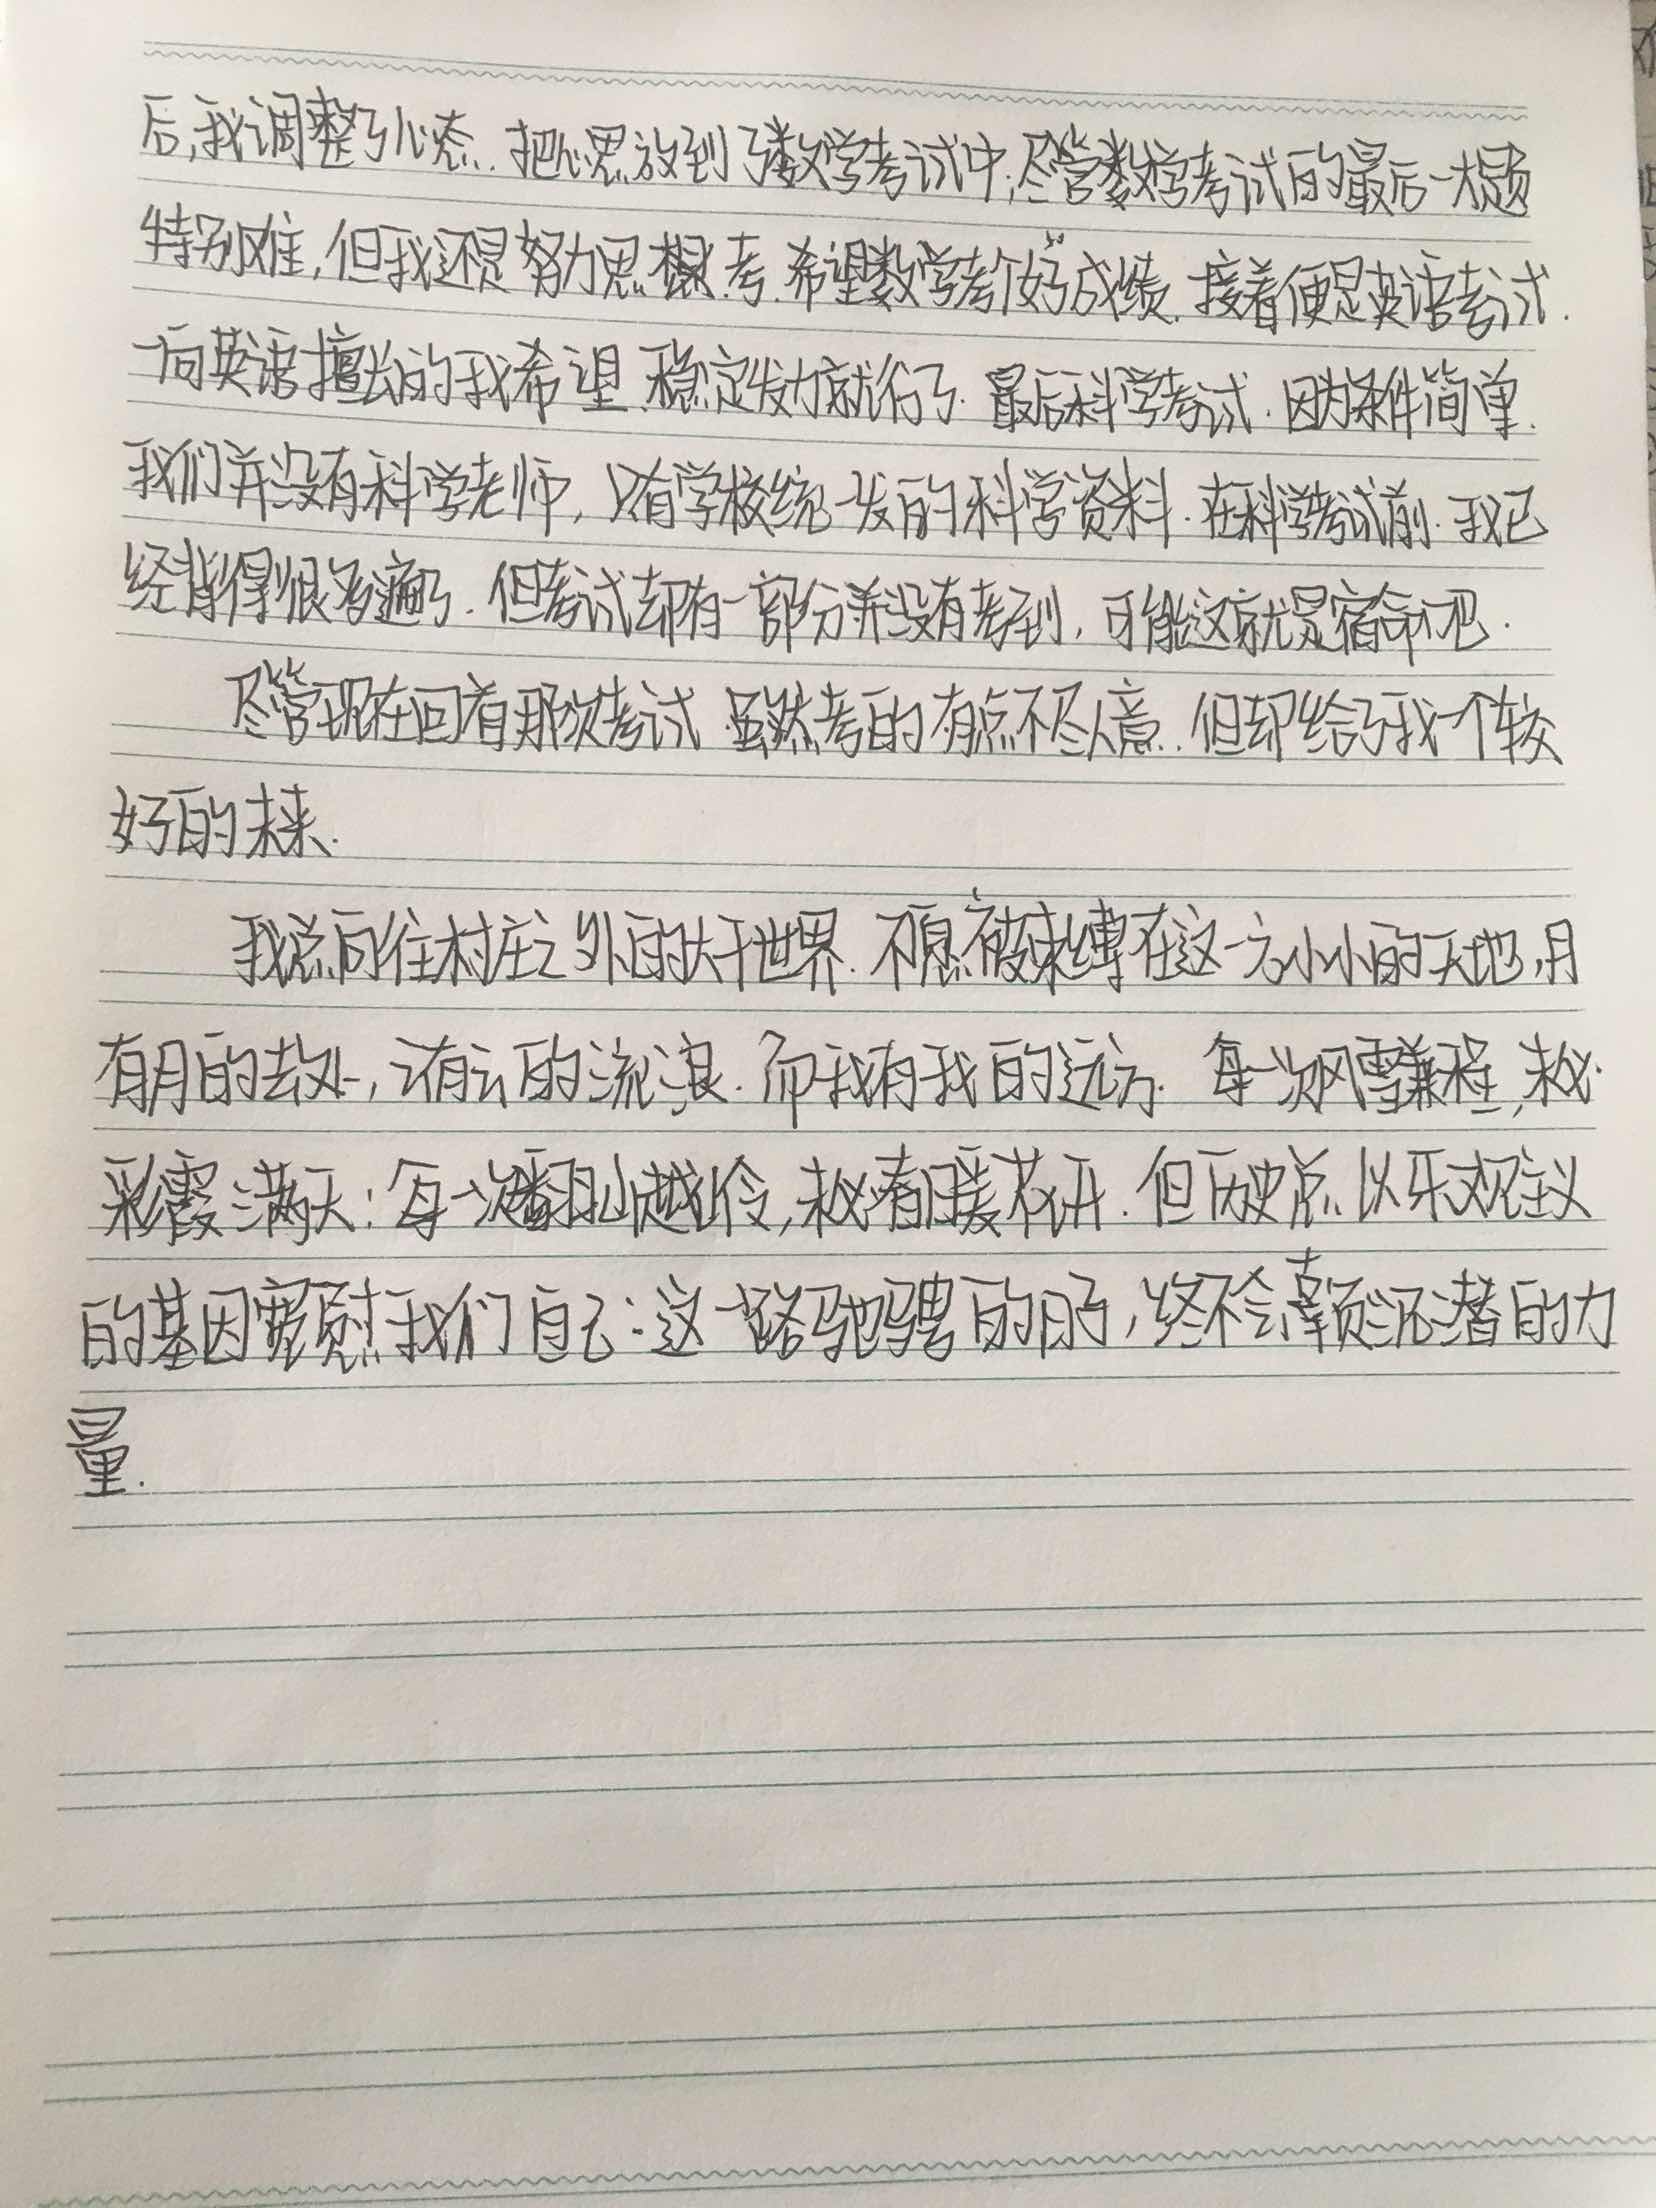 后,我调整了心态.把心思放到了数学考试中,尽管数学考试的最后一大题
特别难,但我还是努力思考.希望数学考个好成绩.接着便是英语考试.
一向英语擅长的我希望稳定发力就行了.最后科学考试.因为条件简单.
我们并没有科学老师,只有学校统一发的科学资料.在科学考试前.我已
经背得很多遍了.但考试却有一部分并没有考到,可能这就是宿命吧.
尽管现在回看那次考试.虽然考的有点不尽人意.但却给了我一个较
好的未来.
我总向往村庄之外的大千世界.不愿被束缚在这一方小小的天地,月
有月的去处,云有云的流浪.而我有我的远方.每一次风雪兼程,未必
彩霞满天;每一次翻山越岭,未必春暖花开.但历史总以乐观主义
的基因宽慰我们自己:这一路驰骋的日子,终不会辜负沉潜的力
量.